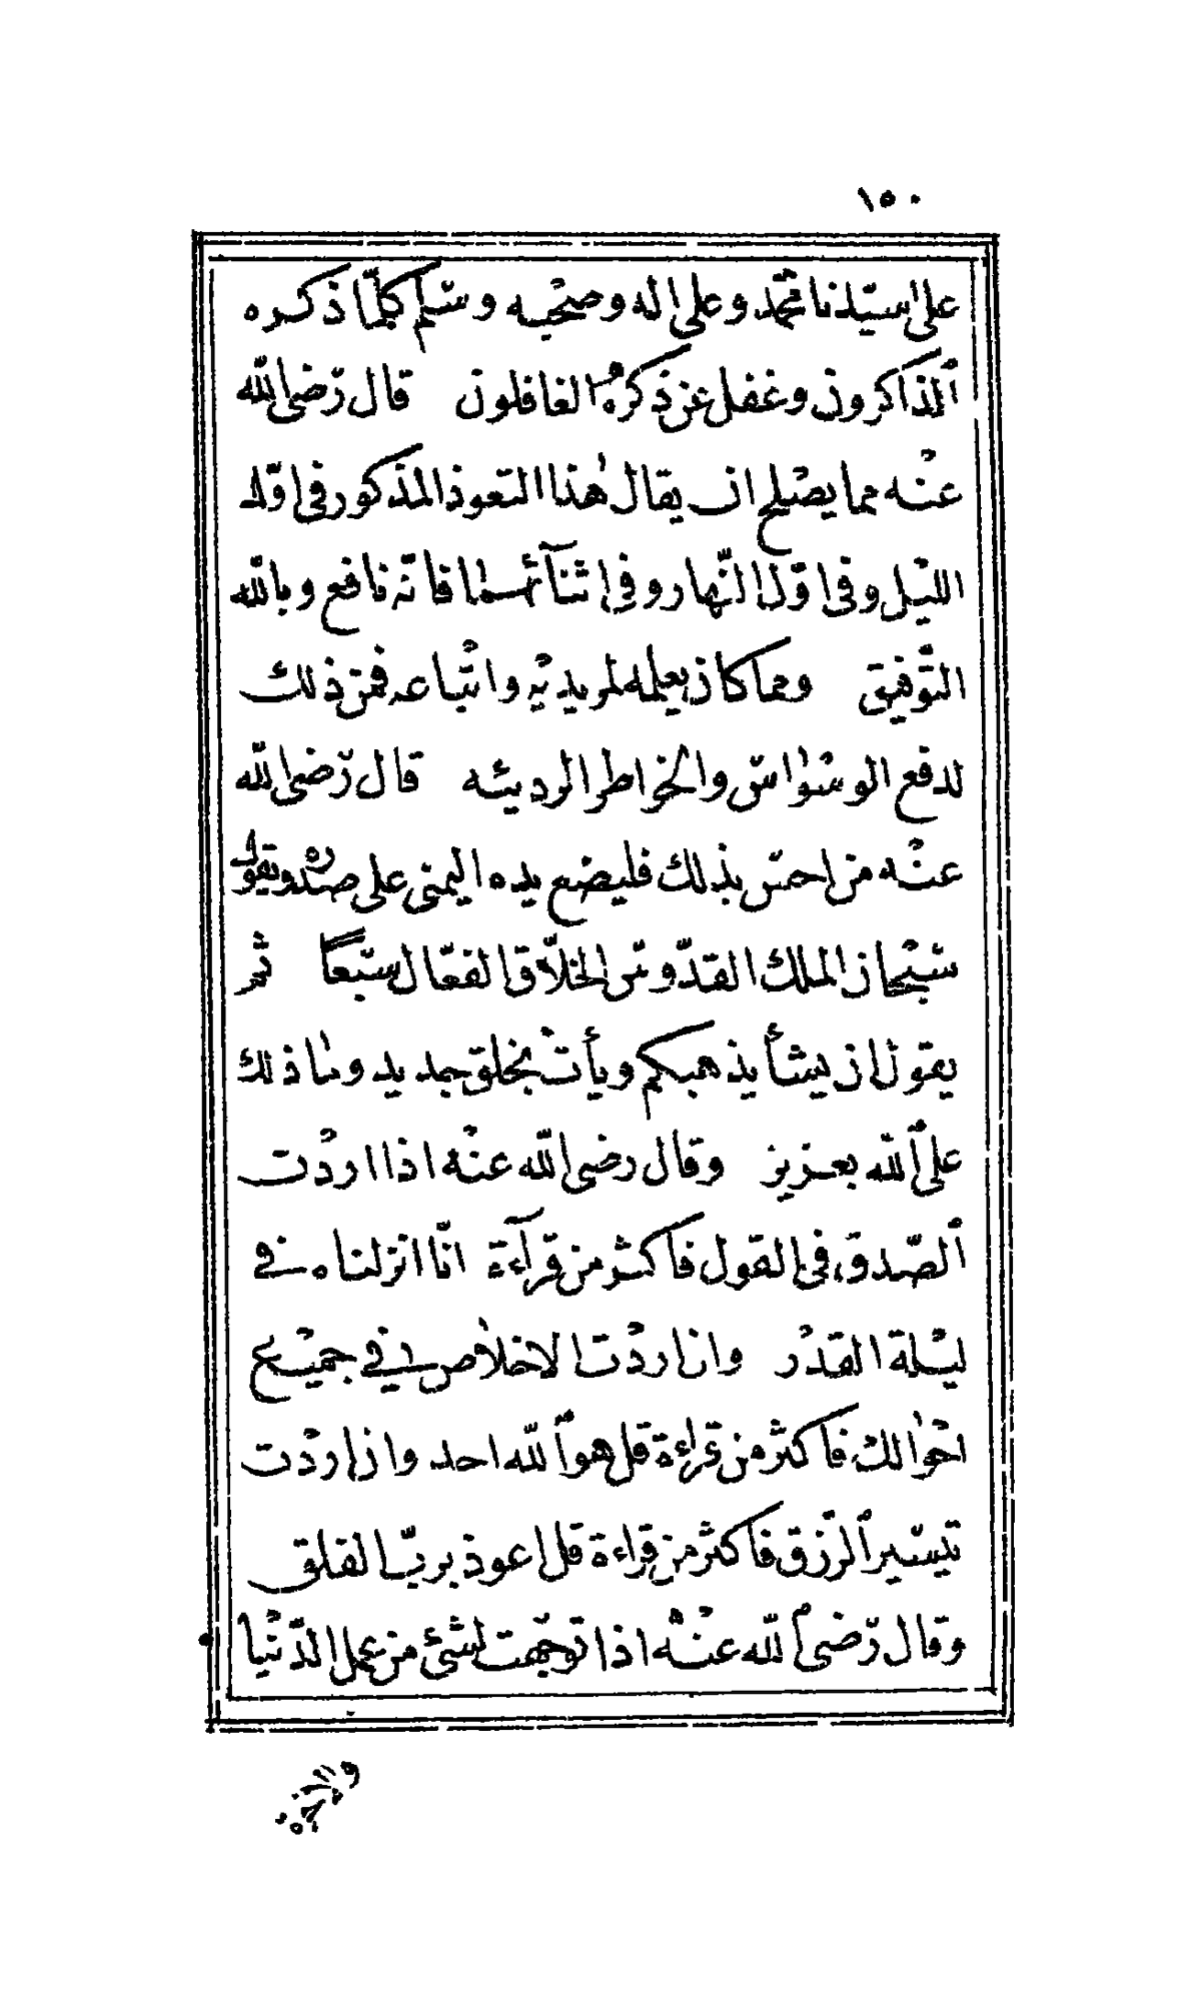 ١٥٠
على سيّدنا محمّد وعلى اله وصحبه وسلم كلّما ذكره
الذاكرون وغفل عن ذكره الغافلون قال رّضى الله
عنْه مما يصْلح ان يقال هٰذا التعوذ المذكور فى اوّل
الليْل وفى اوّل النّهار وفى اثنآئهما فانّه نافع وبالله
التّوفيق ومما كان يعلمه لمريديْه واتْباعه فمن ذلك
لدفع الوسْواس والخواطر الرديئه قال رّضى الله
عنْه من احسّ بذلك فليضع يده اليمنى على صدره ويقول
سبْحان الملك القدّوس الخلّاق الفعّال سبْعاً ثم
يقول ان يشأ يذهبكم ويأت بخلق جديد وما ذلك
على الله بعزيز وقال رضى الله عنْه اذا اردْت
الصّدق فى القول فاكثر من قرآءة انّا انزلناه فى
ليْلة القدْر وان اردْت الاخلاص فى جميْع
احْوالك فاكثر من قراءة قل هو الله احد وان اردْت
تيسّير الرّزق فاكثر من قراءة قل اعوذ بربّ الفلق
وقال رّضى الله عنْه اذا توجّهت لشئ من عمل الدّنْيا
والاخره